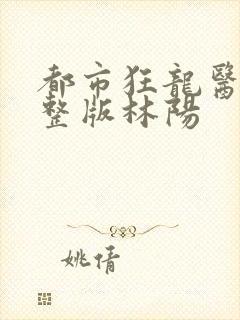 都市狂龍醫
整版林陽
姚倩